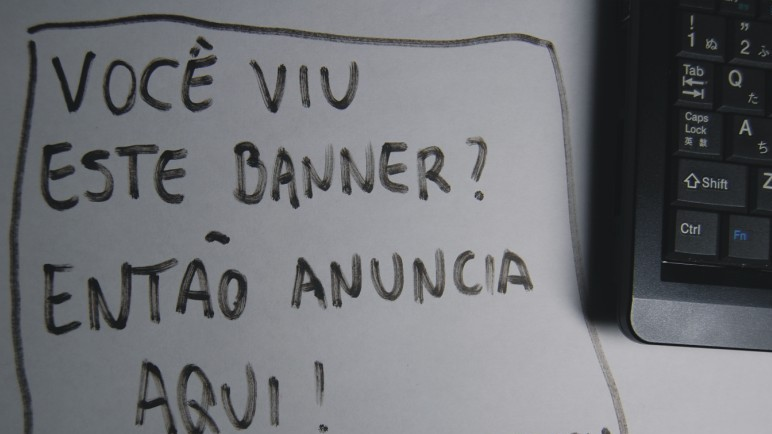 VOCÊ VIU
ESTE BANNER?
ENTÃO ANUNCIA
AQUI!
! 1 ぬ
" 2 ふ
Tab
Q た
Caps Lock 英数
A ち
Shift
Z
Ctrl
Fn